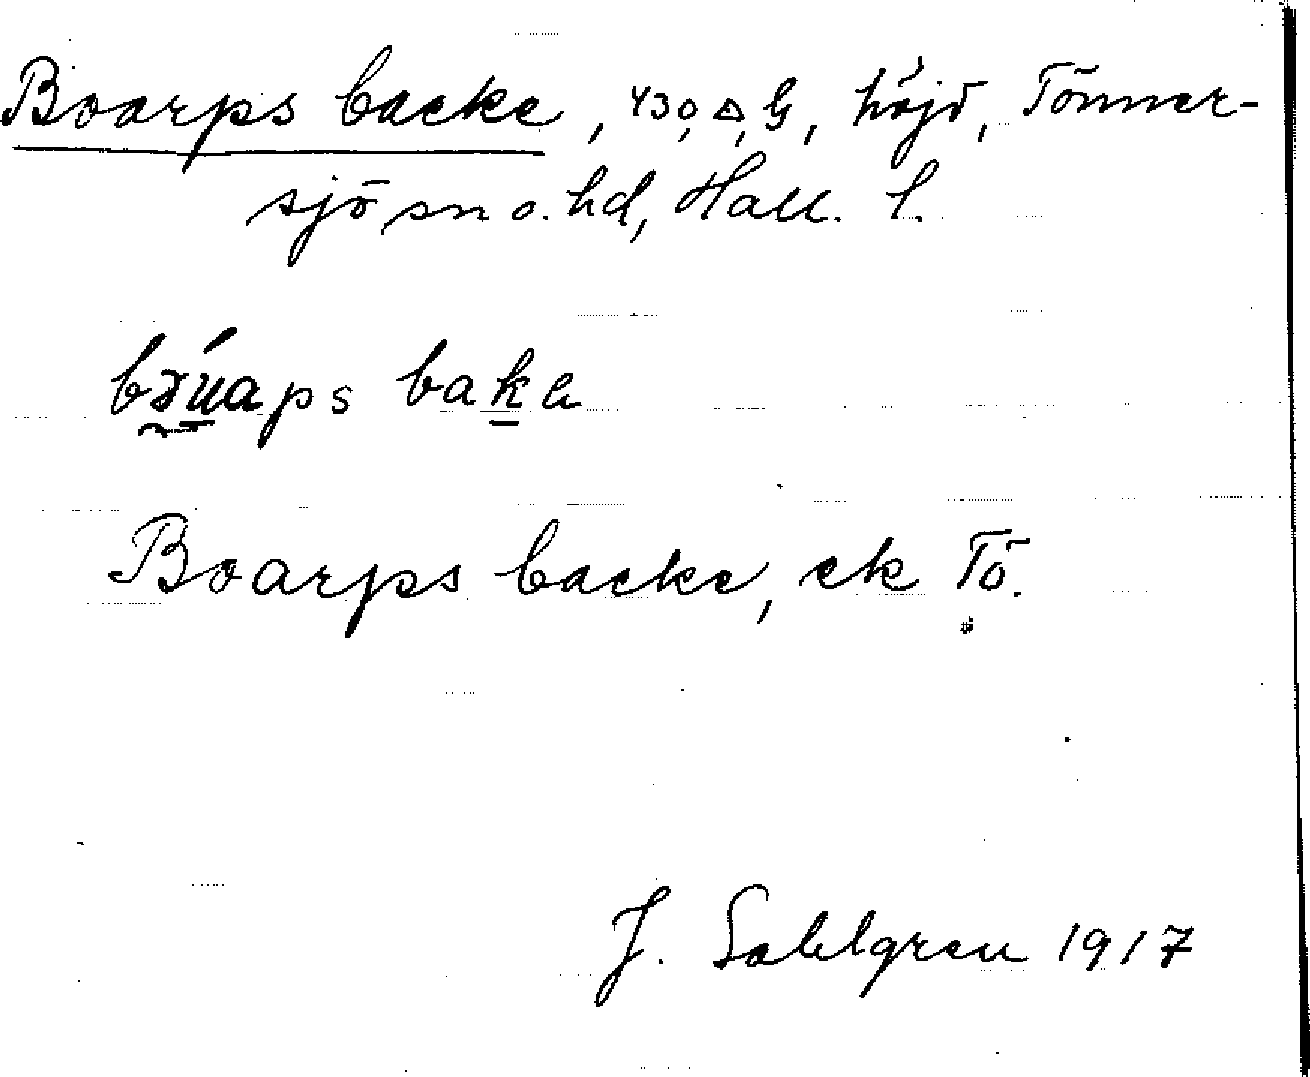 Boarps backe, 430, △, G, höjd, Tönner-
sjö sn o. hd, Hall. l.
baka
Boarps backe, ek Tö.
J. Sahlgren 1917